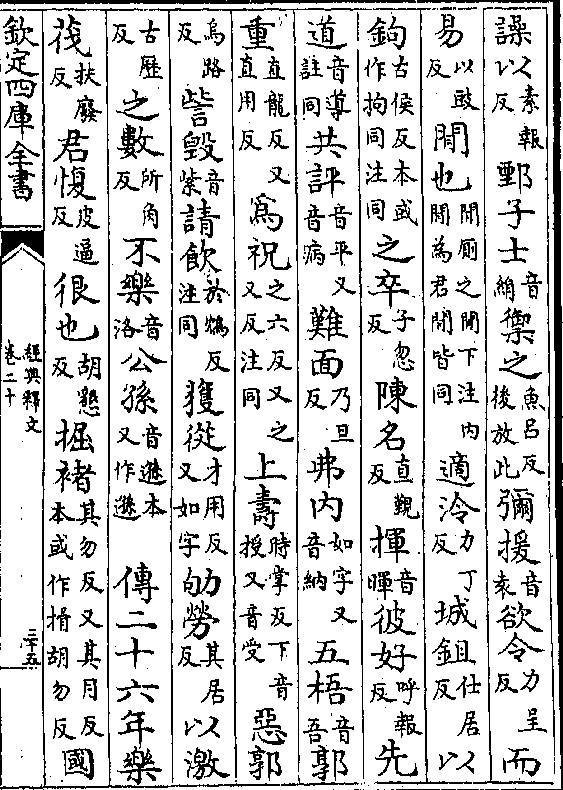 譟以素報反鄄子士音絹禦之魚呂反後放此彌援音袁欲令力呈反而
易以豉反閒也閒廁之閒下注内閒為君閒皆同適泠力丁反城鉏仕居反以
鉤古侯反本或作拘同注同之卒子忽反陳名直覲反揮音暉彼好呼報反先
道音導註同共評音平又音病難面乃旦反弗内如字又音納五梧音吾郭
重直龍反又直用反為祝之六反又之又反注同上壽時掌反下音授又音受惡郭
烏路反訾毀音紫請飲於鴆反注同獲從才用反又如字劬勞其居反以激
古歷反之數所角反不樂音洛公孫音遜本又作遜 傳二十六年樂
茷扶廢反君愎皮逼反很也胡懇反掘褚其勿反又其月反本或作搰胡勿反國
欽定四庫全書
經典釋文
卷二十
二十五